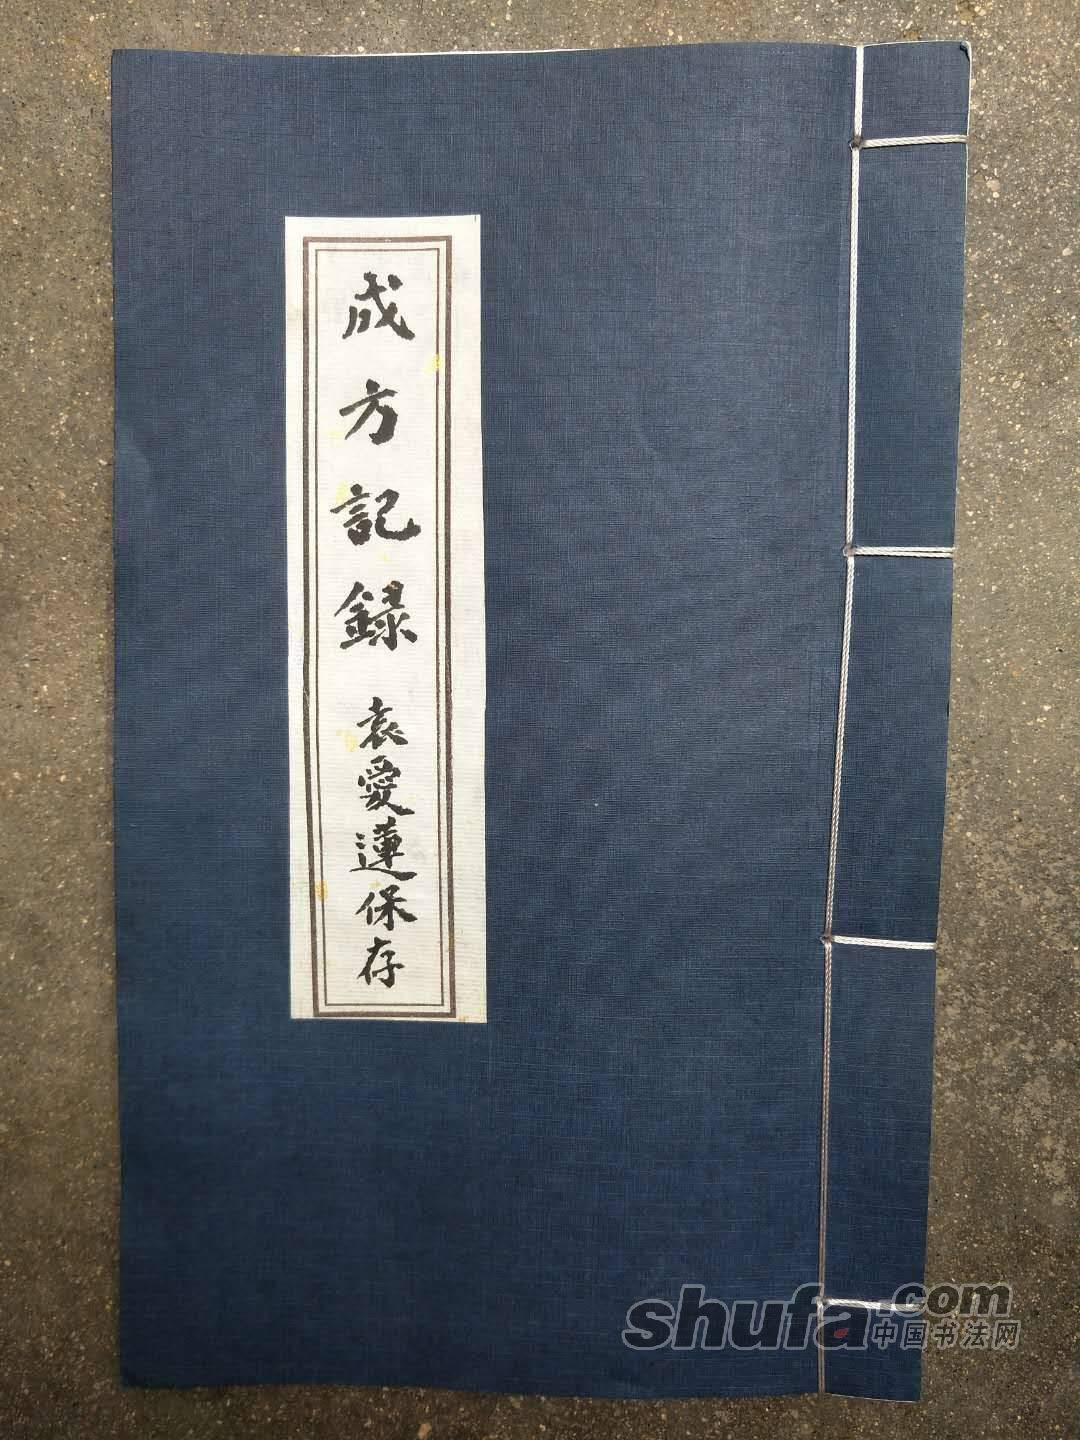 成方記録
袁愛蓮保存
shufa.com
中国书法网